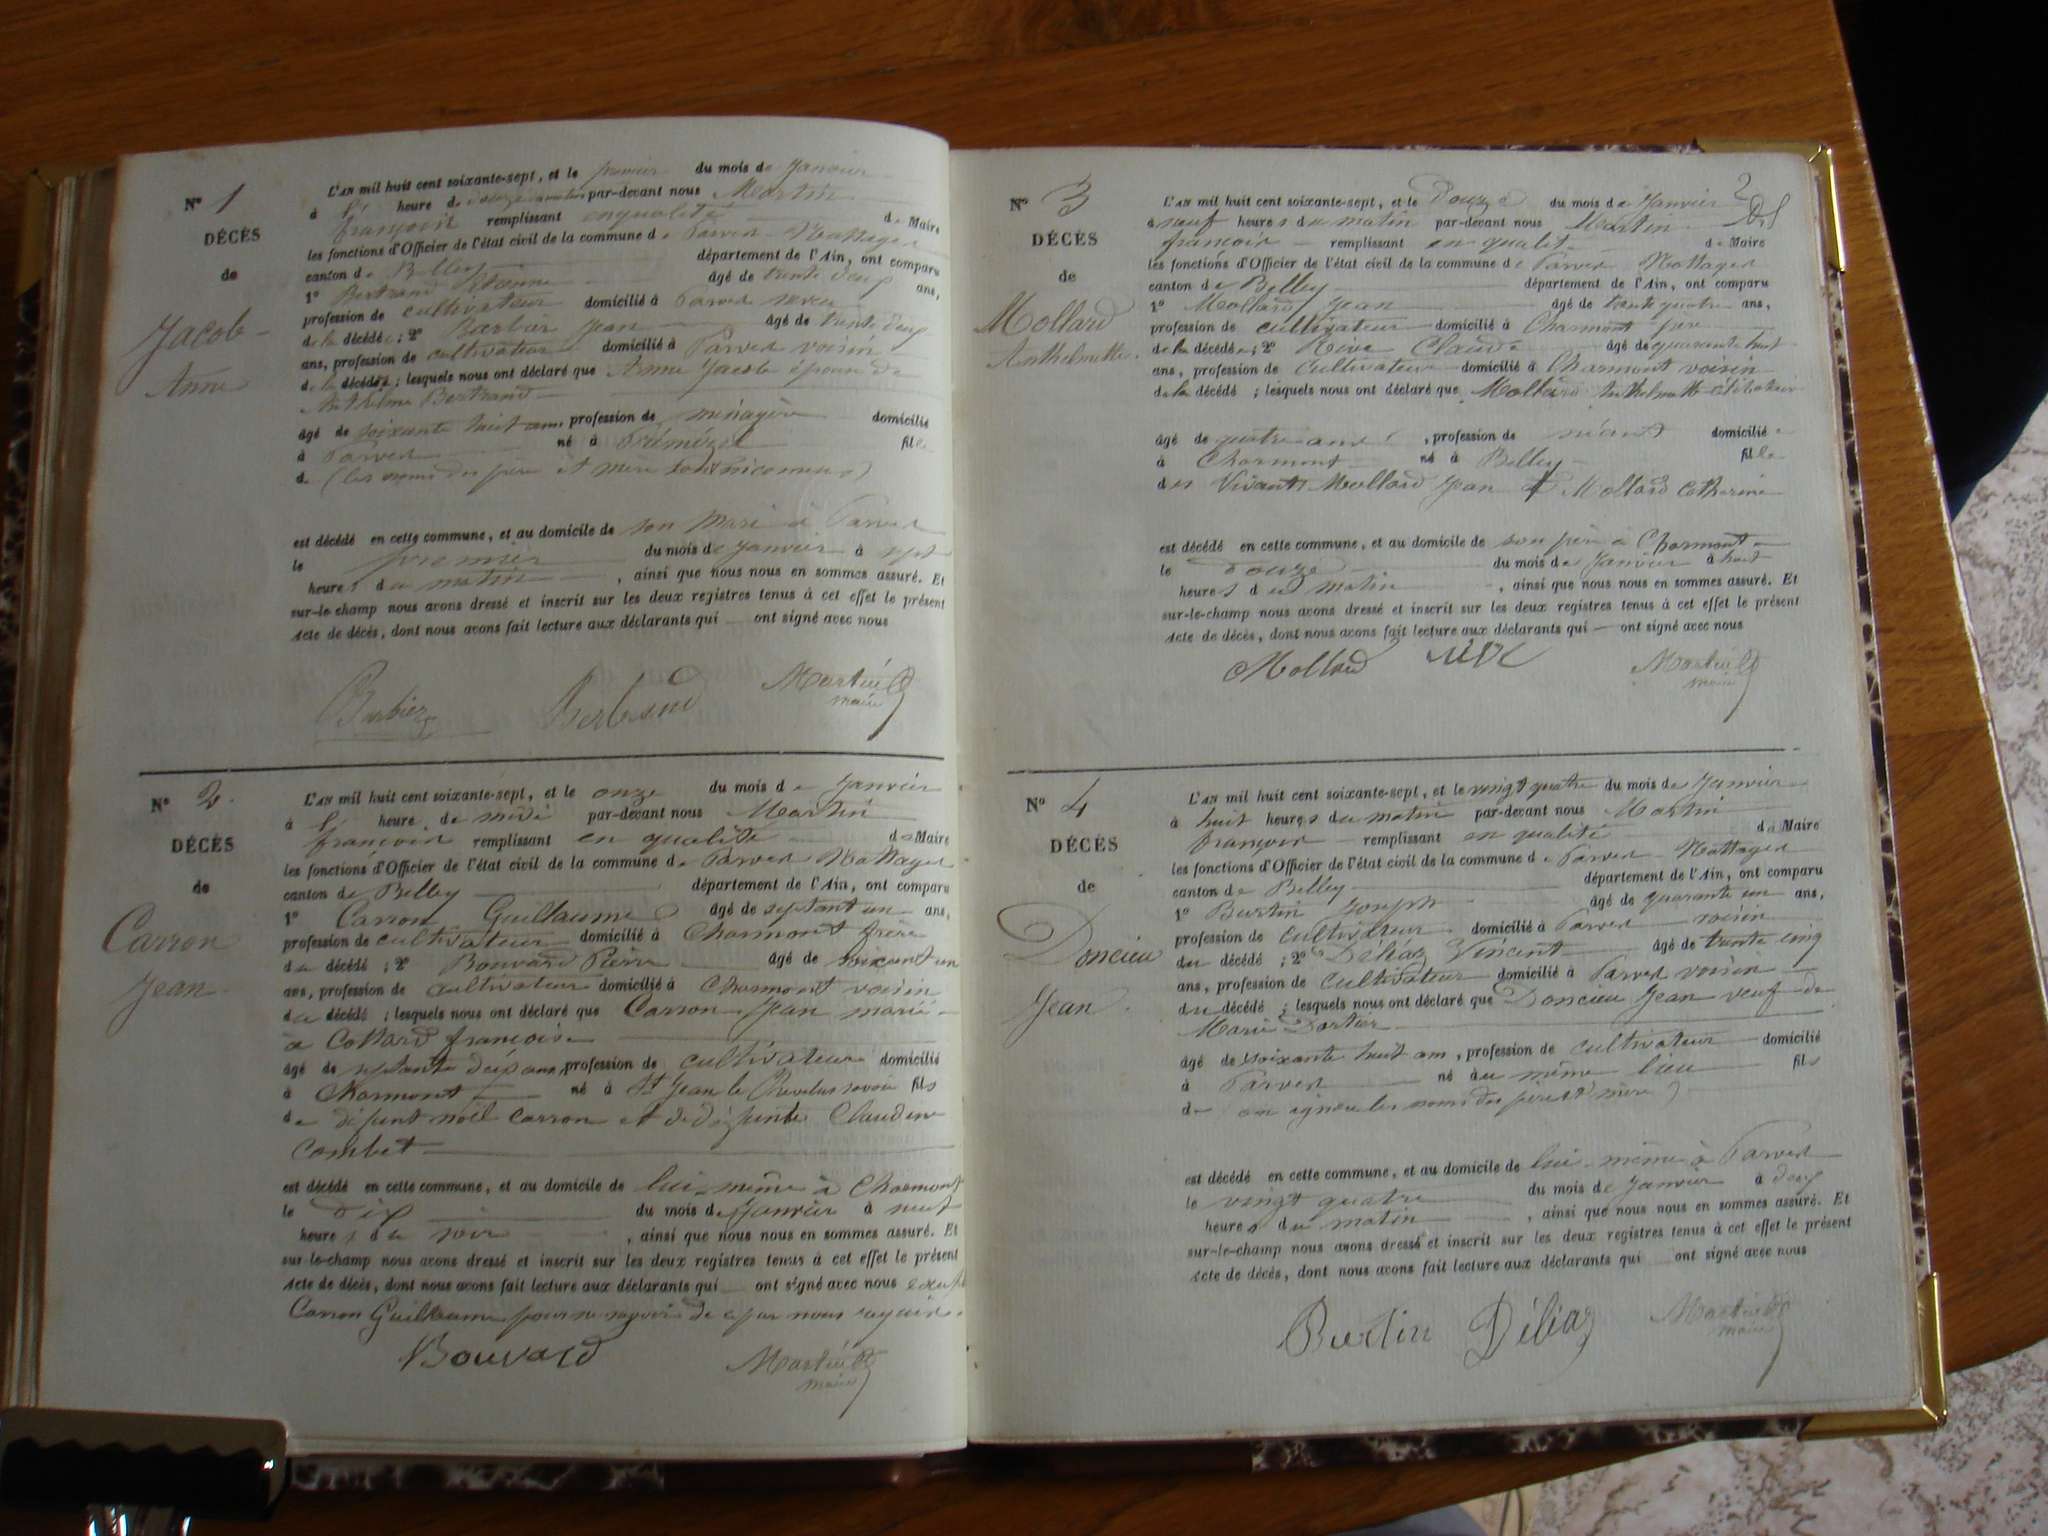 N° 1
DÉCÈS
de
Jacob
Anne
L'AN mil huit cent soixante-sept, et le premier du mois de Janvier
à heure de par-devant nous Martin
françois remplissant en qualité de Maire
les fonctions d'Officier de l'état civil de la commune de Parves Nattages
canton de Belley département de l'Ain, ont comparu
1° Bertrand Etienne âgé de trente deux ans,
profession de cultivateur domicilié à Parves neveu
de la décédée ; 2° Barbier Jean âgé de trente deux
ans, profession de cultivateur domicilié à Parves voisin
de la décédée ; lesquels nous ont déclaré que Anne Jacob épouse de
Anthelme Bertrand
âgé de soixante huit ans, profession de ménagère domicilié
à Parves né à Prémézel fille
de (les noms des père et mère sont inconnus)
est décédé en cette commune, et au domicile de son mari à Parves
le premier du mois de Janvier à sept
heures du matin , ainsi que nous nous en sommes assuré. Et
sur-le-champ nous avons dressé et inscrit sur les deux registres tenus à cet effet le présent
Acte de décès, dont nous avons fait lecture aux déclarants qui — ont signé avec nous
Barbier Bertrand Martin
maire
N° 2
DÉCÈS
de
Carron
Jean
L'AN mil huit cent soixante-sept, et le onze du mois de Janvier
à heure de midi par-devant nous Martin
françois remplissant en qualité de Maire
les fonctions d'Officier de l'état civil de la commune de Parves Nattages
canton de Belley département de l'Ain, ont comparu
1° Carron Guillaume âgé de septant un ans,
profession de cultivateur domicilié à Charmont frère
du décédé ; 2° Bouvard Pierre âgé de soixant un
ans, profession de cultivateur domicilié à Charmont voisin
du décédé ; lesquels nous ont déclaré que Carron Jean marié
à Cottard françoise
âgé de septante ans, profession de cultivateur domicilié
à Charmont né à St Jean le Chevelus savoie fils
de défunt noël Carron et de défunte Claudine
Combet
est décédé en cette commune, et au domicile de lui-même à Charmont
le dix du mois de Janvier à neuf
heures du soir , ainsi que nous nous en sommes assuré. Et
sur-le-champ nous avons dressé et inscrit sur les deux registres tenus à cet effet le présent
Acte de décès, dont nous avons fait lecture aux déclarants qui — ont signé avec nous
Carron Guillaume pour ne savoir de ce par nous requis.
Bouvard Martin
maire
2
N° 3
DÉCÈS
de
Mollard
Anthelmette
L'AN mil huit cent soixante-sept, et le Douze du mois de Janvier
à neuf heures du matin par-devant nous Martin
françois remplissant en qualité de Maire
les fonctions d'Officier de l'état civil de la commune de Parves Nattages
canton de Belley département de l'Ain, ont comparu
1° Mollard Jean âgé de trente quatre ans,
profession de cultivateur domicilié à Charmont père
de la décédée ; 2° Rive Claude âgé de quarante huit
ans, profession de Cultivateur domicilié à Charmont voisin
de la décédé ; lesquels nous ont déclaré que Mollard Anthelmette célibataire
âgé de quatre ans , profession de néant domicilié
à Charmont né à Belley fille
des Vivants Mollard Jean et Mollard Catherine
est décédé en cette commune, et au domicile de son père à Charmont
le douze du mois de Janvier à huit
heures du matin , ainsi que nous nous en sommes assuré. Et
sur-le-champ nous avons dressé et inscrit sur les deux registres tenus à cet effet le présent
Acte de décès, dont nous avons fait lecture aux déclarants qui — ont signé avec nous
Mollard rive Martin
maire
N° 4
DÉCÈS
de
Doncieu
Jean
L'AN mil huit cent soixante-sept, et le vingt quatre du mois de Janvier
à huit heures du matin par-devant nous Martin
françois remplissant en qualité de Maire
les fonctions d'Officier de l'état civil de la commune de Parves Nattages
canton de Belley département de l'Ain, ont comparu
1° Burtin Joseph âgé de quarante un ans,
profession de cultivateur domicilié à Parves voisin
du décédé ; 2° Déléaz Vincent âgé de trente cinq
ans, profession de cultivateur domicilié à Parves voisin
du décédé ; lesquels nous ont déclaré que Doncieu Jean veuf de
Marie Dortier
âgé de soixante huit ans , profession de cultivateur domicilié
à Parves né au même lieu fils
de (on ignore les noms des père et mère)
est décédé en cette commune, et au domicile de lui-même à Parves
le vingt quatre du mois de Janvier à deux
heures du matin , ainsi que nous nous en sommes assuré. Et
sur-le-champ nous avons dressé et inscrit sur les deux registres tenus à cet effet le présent
Acte de décès, dont nous avons fait lecture aux déclarants qui ont signé avec nous
Burtin Déléaz Martin
maire